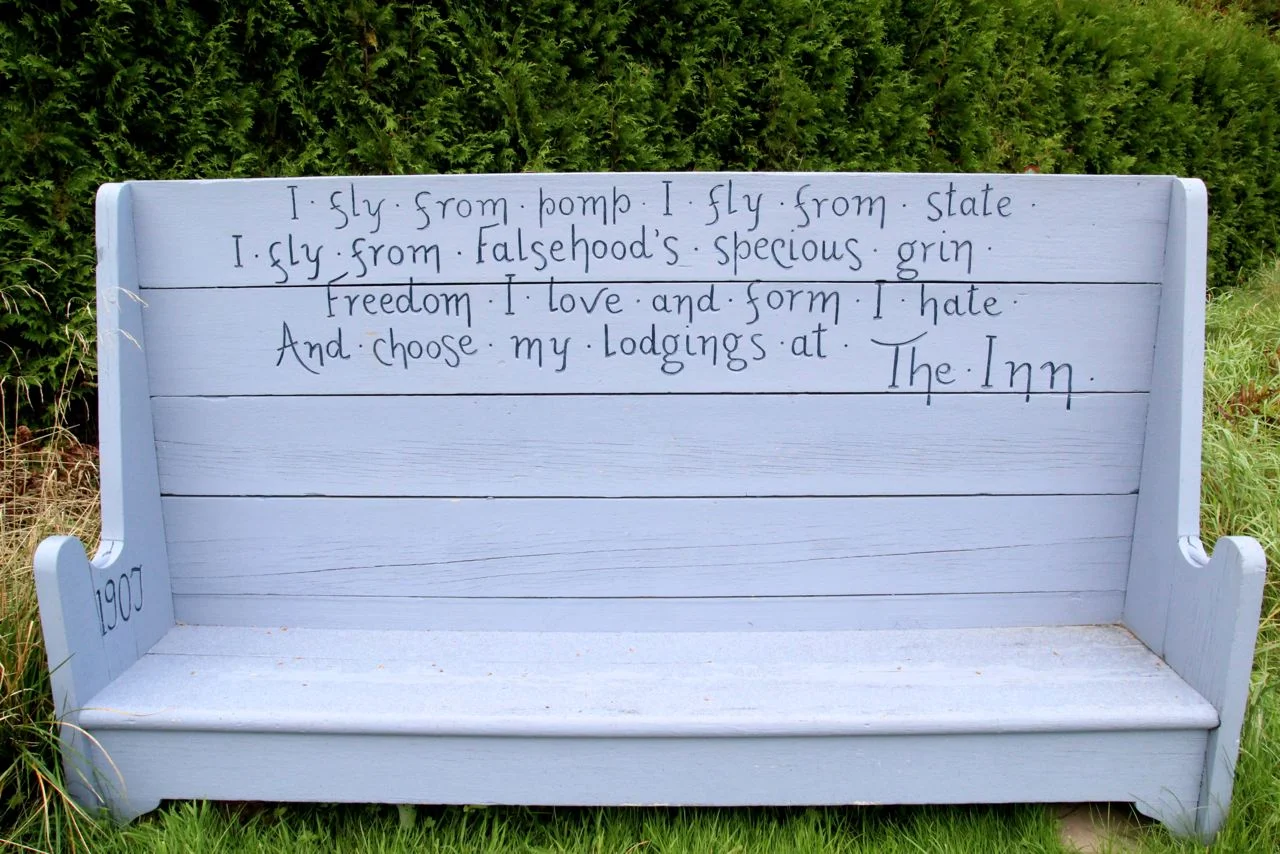 I · fly · from · pomp · I · fly · from · state ·
I · fly · from · Falsehood's · specious · grin ·
Freedom · I · love · and · form · I · hate ·
And · choose · my · Lodgings · at · The · Inn ·
1907